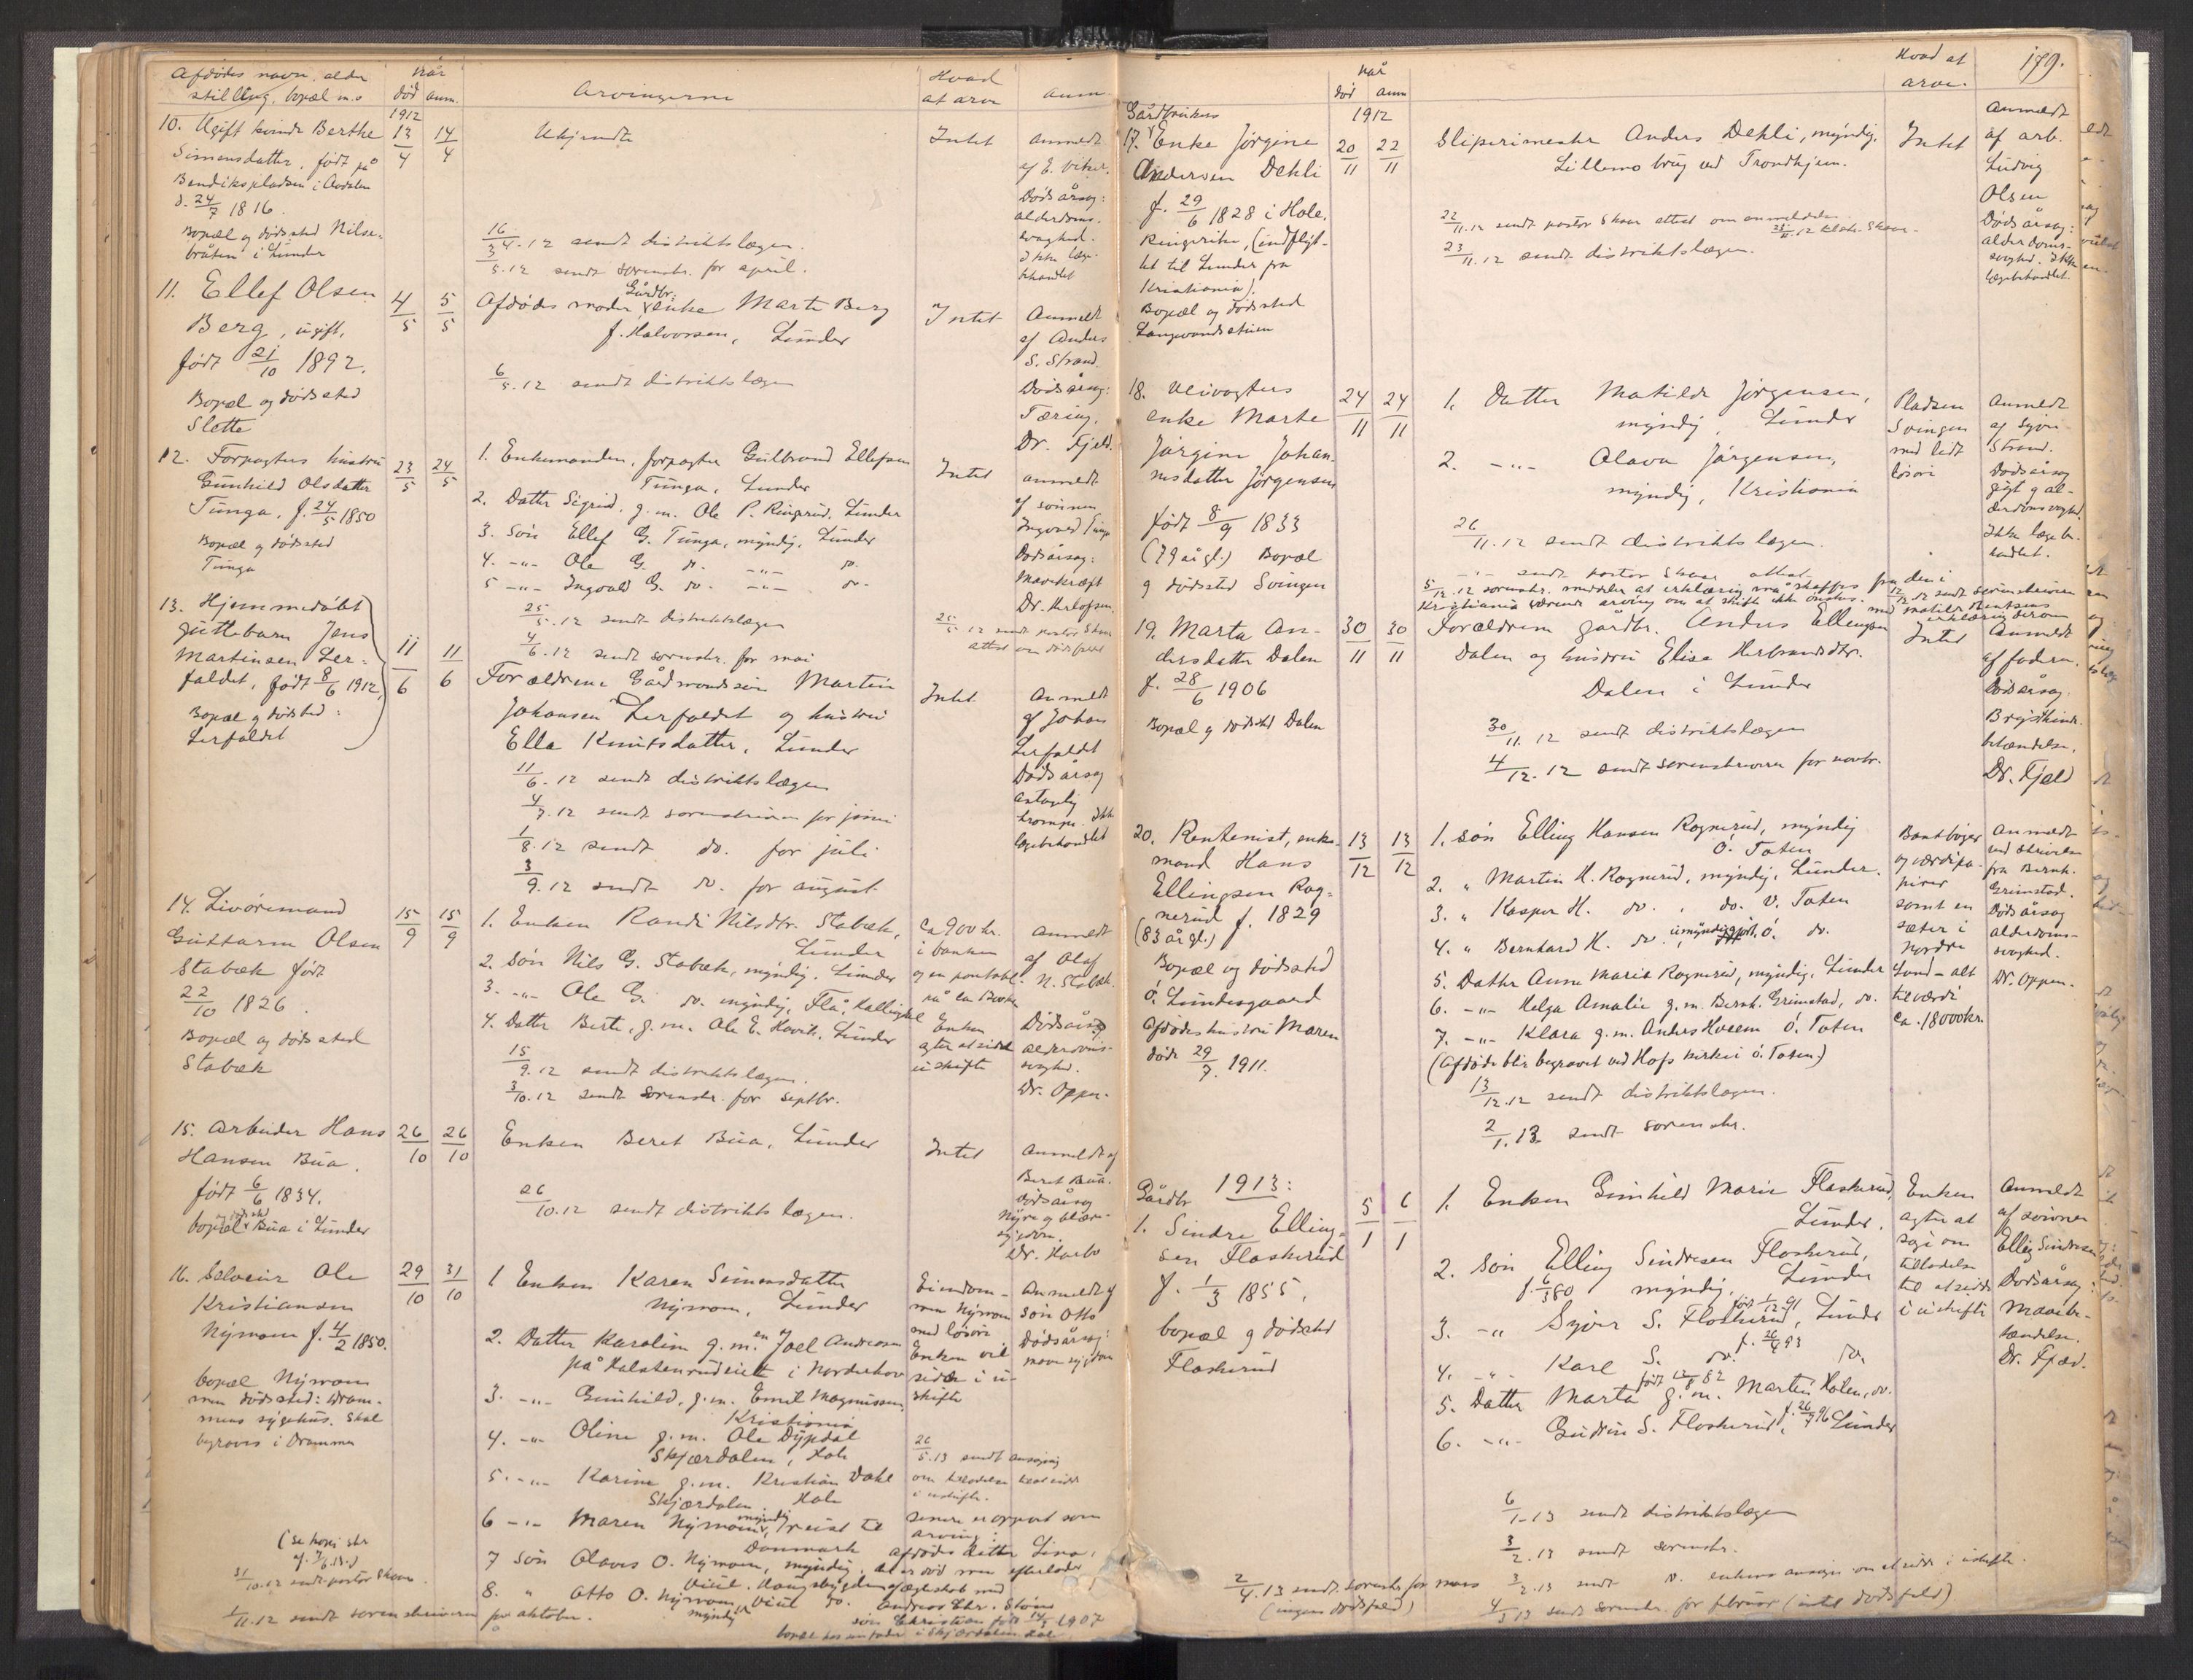 Afdødes navn, alder
stilling, bopæl m.v
Når
død anm.
Arvingerne
Hvad
at arve
Anm.
1912
10. Ugift kvinde Berthe
Simensdatter, født på
Bendikspladsen i Aadalen
d. 24/7 1816.
Bopæl og dødssted Nilse-
bråten i Lunder
13/4 14/4
Ukjendte
16/4.12 sendt distriktslægen.
3/5.12 sendt sorenskr. for april.
Intet
Anmeldt
af E. Viker.
Dødsårsag:
alderdoms-
svaghed.
Ikke læge-
behandlet
11. Ellef Olsen
Berg, ugift,
født 21/10 1892.
Bopæl og dødssted
Slette
4/5 5/5
Afdødes moder Gårdbr. enke Marte Berg
f. Halvorsen, Lunder
6/5.12 sendt distriktslægen
Intet
Anmeldt
af Anders
S. Strand.
Dødsårsag:
Tæring.
Dr. Fjeld.
12. Forpagters hustru
Gunhild Olsdatter
Tunga, f. 24/5 1850
Bopæl og dødssted
Tunga
23/5 24/5
1. Enkemanden, forpagter Gulbrand Ellefsen
Tunga, Lunder
2. Datter Sigrid, g.m. Ole P. Ringerud, Lunder
3. Søn Ellef G. Tunga, myndig, Lunder
4. -"- Ole G. do. -"- do.
5 -"- Ingvald G. do. -"- do.
25/5.12 sendt distriktslægen
4/6.12 sendt sorenskr. for mai
Intet
25/5 12 sendt pastor Skaar
attest om dødsfald
anmeldt
af sønnen
Ingvald Tunga
Dødsårsag:
Mavekræft
Dr. Herlofsen.
13. Hjemmedøbt
guttebarn Jens
Martinsen Ler-
faldet, født 8/6 1912,
Bopæl og dødssted:
Lerfaldet
11/6 11/6
Forældrene Gårdmandssøn Martin
Johansen Lerfaldet og hustru
Ella Knutsdatter, Lunder
11/6.12 sendt distriktslægen
4/7.12 sendt sorenskriveren for juni
1/8.12 sendt do. for juli
3/9.12 sendt do. for august
Intet
Anmeldt
af Johans
Lerfaldet
Dødsårsag
antagelig
krampe. Ikke
lægebehandlet
14. Livøremand
Guttorm Olsen
Stabæk født
22/10 1826.
Bopæl og dødssted
Stabæk
15/9 15/9
1. Enken Randi Nilsdtr. Stabæk,
Lunder
2. Søn Nils G. Stabæk, myndig, Lunder
3. -"- Ole G. do. myndig, Flå, Hallingdal
4. Datter Berte, g.m. Ole E. Hovik, Lunder
15/9.12 sendt distriktslægen.
3/10.12 sendt sorenskr. for septbr.
Ca 900 kr.
i banken
og en
Enken
agter at sidde
i uskifte
anmeldt
af Olaf
N. Stabæk.
Dødsårsag
alderdoms-
svaghed.
Dr. Oppen.
15. Arbeider Hans
Hansen Bua,
født 6/6 1834.
bopæl og dødssted Bua i Lunder
26/10 26/10
Enken Beret Bua, Lunder
26/10.12 sendt distriktslægen.
Intet
Anmeldt af
Beret Bua.
Dødsårsag
Nyre og blære-
sygdom.
Dr. Harbo
16. Selveier Ole
Kristiansen
Nymoen f. 4/2 1850.
bopæl Nymoen
men dødssted: Dram-
mens sygehus. Skal
begraves i Drammen
29/10 31/10
1 Enken Karen Simensdatter
Nymoen, Lunder
2. Datter Karoline g.m. Joel Andersen
på Halstenrudeiet i Norderhov
3. -"- Gunhild, g.m. Emil Magnussen,
Kristiania
4. -"- Oline g.m. Ole Dypdal
Skjærdalen, Hole
5. -"- Karine g.m. Kristian Dahl
Skjærdalen, Hole
6 -"- Maren Nymoen, myndig, reist til
Danmark
7 Søn Olaves O. Nymoen, myndig,
8. " Otto O. Nymoen, Viul
myndig
Eiendom-
men Nymoen
med løsøre
Enken vil
sidde i u-
skifte
26/5.13 sendt ansøgning
om tilladelse til at sidde
i uskifte.
senere er opgivet som
arving:
afdødes datter Lina,
der er død men efterlader
i ægteskab med
Andreas Chr.
søn Christian født 14/3 1907
bopæl hos sin fader i Skjærdalen Hole
Anmeldt af
søn Otto
Dødsårsag:
mavesygdom
(se kopi skr
af 7/6.13.)
31/10.12 sendt pastor Skaar.
1/11.12 sendt sorenskriveren for oktober.
179.
Når
død anm
Hvad at
arve.
1912
Gårdbrukers
17. Enke Jørgine
Andersen Dehli
f. 29/6 1828 i Hole,
Ringerike, (indflyt-
tet til Lunder fra
Kristiania).
Bopæl og dødssted
Langvandsstuen
20/11 22/11
Sliperimester Anders Dehli, myndig,
Lillemo brug ved Trondhjem.
22/11.12 sendt pastor Skaar attest om anmeldelse.
23/11.12 sendt distriktslægen.
Intet
Anmeldt
af arb.
Ludvig
Olsen
Dødsårsag:
alderdoms-
svaghed. Ikke
lægebehandlet.
18. Veivogters
enke Marte
Jørgine Johan-
nesdatter Jørgensen
født 8/9 1833
(79 år gl.) Bopæl
og dødssted Svingen
24/11 24/11
1. Datter Matilde Jørgensen,
myndig, Lunder
2. -"- Olava Jørgensen,
myndig, Kristiania
26/11.12 sendt distriktslægen.
-"- sendt pastor Skaar attest
5/12.12 sorenskr. meddeler at erklæring må skaffes fra den i
Kristiania værende arving om at skifte ikke ønskes.
12/12.12 sendt sorenskriveren
Pladsen
Svingen
med lidt
løsøre
Anmeldt
af Syver
Strand.
Dødsårsag
gigt og al-
derdomssvaghed.
Ikke lægebe-
handlet.
19. Marta An-
dersdatter Dalen
f. 28/6 1906
Bopæl og dødssted Dalen
30/11 30/11
Forældrene gårdbr. Anders Ellingsen
Dalen og hustru Elise Herbrandsdtr.
Dalen i Lunder
30/11.12 sendt distriktslægen
4/12.12 sendt sorenskriveren for novbr.
Intet
Anmeldt
af faderen.
Dødsårsag.
Brysthinde-
betændelse.
Dr. Fjeld
20. Rentenist, enke-
mand Hans
Ellingsen Rog-
nerud f. 1829
(83 år gl.)
Bopæl og dødssted
Ø. Lundesgaard
Afdødes hustru Maren
døde 29/7.1911.
13/12 13/12
1. søn Elling Hansen Rognerud, myndig
Ø. Toten
2. " Martin H. Rognerud, myndig, Lunder.
3. " Kasper H. do. , do. V. Toten
4. " Bernhard H. do., umyndiggjort, Ø. do.
5. Datter Anne Marie Rognerud, myndig, Lunder
6. -"- Helga Amalie g.m. Bernh. Grimstad, do.
7. -"- Klara g.m. Anders Hveem Ø. Toten
(Afdøde blir begravet ved Hofs kirke i Ø. Toten.)
13/12.12 sendt distriktslægen.
2/1.13 sendt sorenskr.
Bankbøger
og værdipa-
pirer
samt en
sæter i
Nordre
Land - alt
til værdi
Ca. 18000 kr.
Anmeldt
ved skrivelse
fra Bernh.
Grimstad.
Dødsårsag
alderdoms-
svaghed.
Dr. Oppen.
1913:
Gårdbr
1. Sindre Elling-
sen Flaskerud
f. 1/3 1855,
bopæl og dødssted
Flaskerud
5/1 6/1
1. Enken Gunhild Marie Flaskerud,
Lunder.
2. Søn Elling Sindresen Flaskerud,
f. 6/3 80 myndig, Lunder
3. -"- Syver S. Flaskerud, født 1/12 91 Lunder
4. -"- Karl S. do. f. 26/4 93 do.
5. Datter Marta født 12/8 82 g.m. Martin Holen, do.
6. -"- Gudrun S. Flaskerud, f. 26/7 96 Lunder
6/1-13 sendt distriktslægen
3/2.13 sendt sorenskr.
3/2.13 sendt do. enkens ansøgn om at sidde i uskifte.
4/3 13 sendt sorenskr. for februar (intet dødsfald)
Enken
agter at
søge om
tilladelse
til at sidde
i uskifte
Anmeldt
af sønnen
Elling Sindresen
Dødsårsag:
Mavebe-
tændelse.
Dr. Fjeld.
2/4.13 sendt sorenskr for mars
(ingen dødsfald)